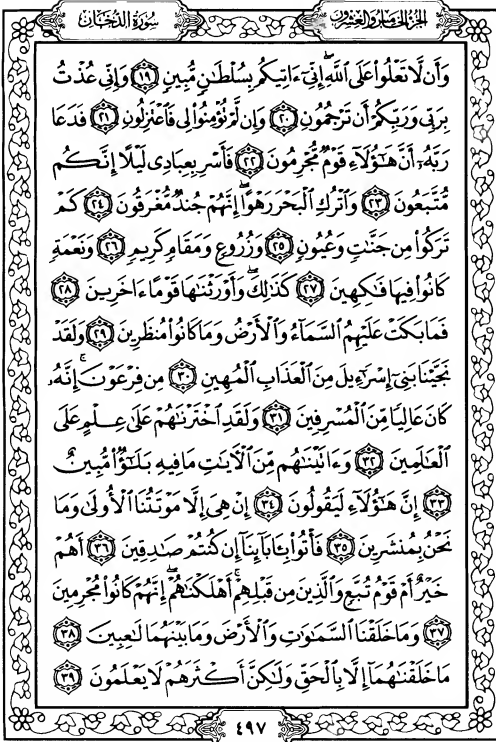 سُورَةُ الدُّخَانِ
الجُزْءُ الخَامِسُ وَالعِشْرُونَ
وَأَن لَّا تَعْلُوا۟ عَلَى ٱللَّهِ ۖ إِنِّىٓ ءَاتِيكُم بِسُلْطَٰنٍ مُّبِينٍ ١٩ وَإِنِّى عُذْتُ
بِرَبِّى وَرَبِّكُمْ أَن تَرْجُمُونِ ٢٠ وَإِن لَّمْ تُؤْمِنُوا۟ لِى فَٱعْتَزِلُونِ ٢١ فَدَعَا
رَبَّهُۥٓ أَنَّ هَٰٓؤُلَآءِ قَوْمٌ مُّجْرِمُونَ ٢٢ فَأَسْرِ بِعِبَادِى لَيْلًا إِنَّكُم
مُّتَّبَعُونَ ٢٣ وَٱتْرُكِ ٱلْبَحْرَ رَهْوًا ۖ إِنَّهُمْ جُندٌ مُّغْرَقُونَ ٢٤ كَمْ
تَرَكُوا۟ مِن جَنَّٰتٍ وَعُيُونٍ ٢٥ وَزُرُوعٍ وَمَقَامٍ كَرِيمٍ ٢٦ وَنَعْمَةٍ
كَانُوا۟ فِيهَا فَٰكِهِينَ ٢٧ كَذَٰلِكَ ۖ وَأَوْرَثْنَٰهَا قَوْمًا ءَاخَرِينَ ٢٨
فَمَا بَكَتْ عَلَيْهِمُ ٱلسَّمَآءُ وَٱلْأَرْضُ وَمَا كَانُوا۟ مُنظَرِينَ ٢٩ وَلَقَدْ
نَجَّيْنَا بَنِىٓ إِسْرَٰٓءِيلَ مِنَ ٱلْعَذَابِ ٱلْمُهِينِ ٣٠ مِن فِرْعَوْنَ ۚ إِنَّهُۥ
كَانَ عَالِيًا مِّنَ ٱلْمُسْرِفِينَ ٣١ وَلَقَدِ ٱخْتَرْنَٰهُمْ عَلَىٰ عِلْمٍ عَلَى
ٱلْعَٰلَمِينَ ٣٢ وَءَاتَيْنَٰهُم مِّنَ ٱلْءَايَٰتِ مَا فِيهِ بَلَٰٓؤٌا۟ مُّبِينٌ
٣٣ إِنَّ هَٰٓؤُلَآءِ لَيَقُولُونَ ٣٤ إِنْ هِىَ إِلَّا مَوْتَتُنَا ٱلْأُولَىٰ وَمَا
نَحْنُ بِمُنشَرِينَ ٣٥ فَأْتُوا۟ بِـَٔابَآئِنَآ إِن كُنتُمْ صَٰدِقِينَ ٣٦ أَهُمْ
خَيْرٌ أَمْ قَوْمُ تُبَّعٍ وَٱلَّذِينَ مِن قَبْلِهِمْ ۚ أَهْلَكْنَٰهُمْ ۖ إِنَّهُمْ كَانُوا۟ مُجْرِمِينَ
٣٧ وَمَا خَلَقْنَا ٱلسَّمَٰوَٰتِ وَٱلْأَرْضَ وَمَا بَيْنَهُمَا لَٰعِبِينَ ٣٨
مَا خَلَقْنَٰهُمَآ إِلَّا بِٱلْحَقِّ وَلَٰكِنَّ أَكْثَرَهُمْ لَا يَعْلَمُونَ ٣٩
٤٩٧